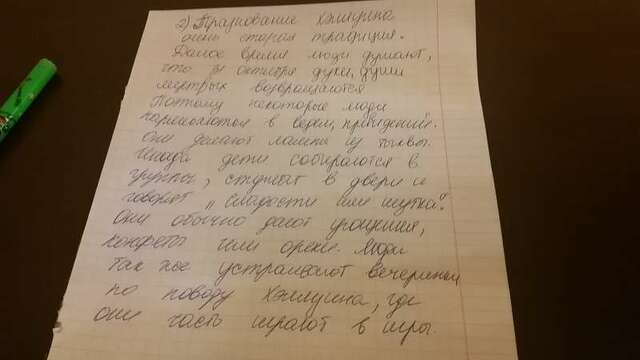 2) Празнование Хэллуина
очень старая традиция.
Долгое время люди думают,
что 31 октября духи, души
мертвых возвращаются
Поэтому некоторые люди
наряжаются в ведьм, привидений.
Они делают лампы из тыквы.
Иногда дети собираются в
группы, стучат в двери и
говорят „Сладости или шутка".
Они обычно дают угощения,
конфеты или орехи. Люди
так же устраивают вечеринки
по поводу Хэллуина, где
они часть играют в игры.